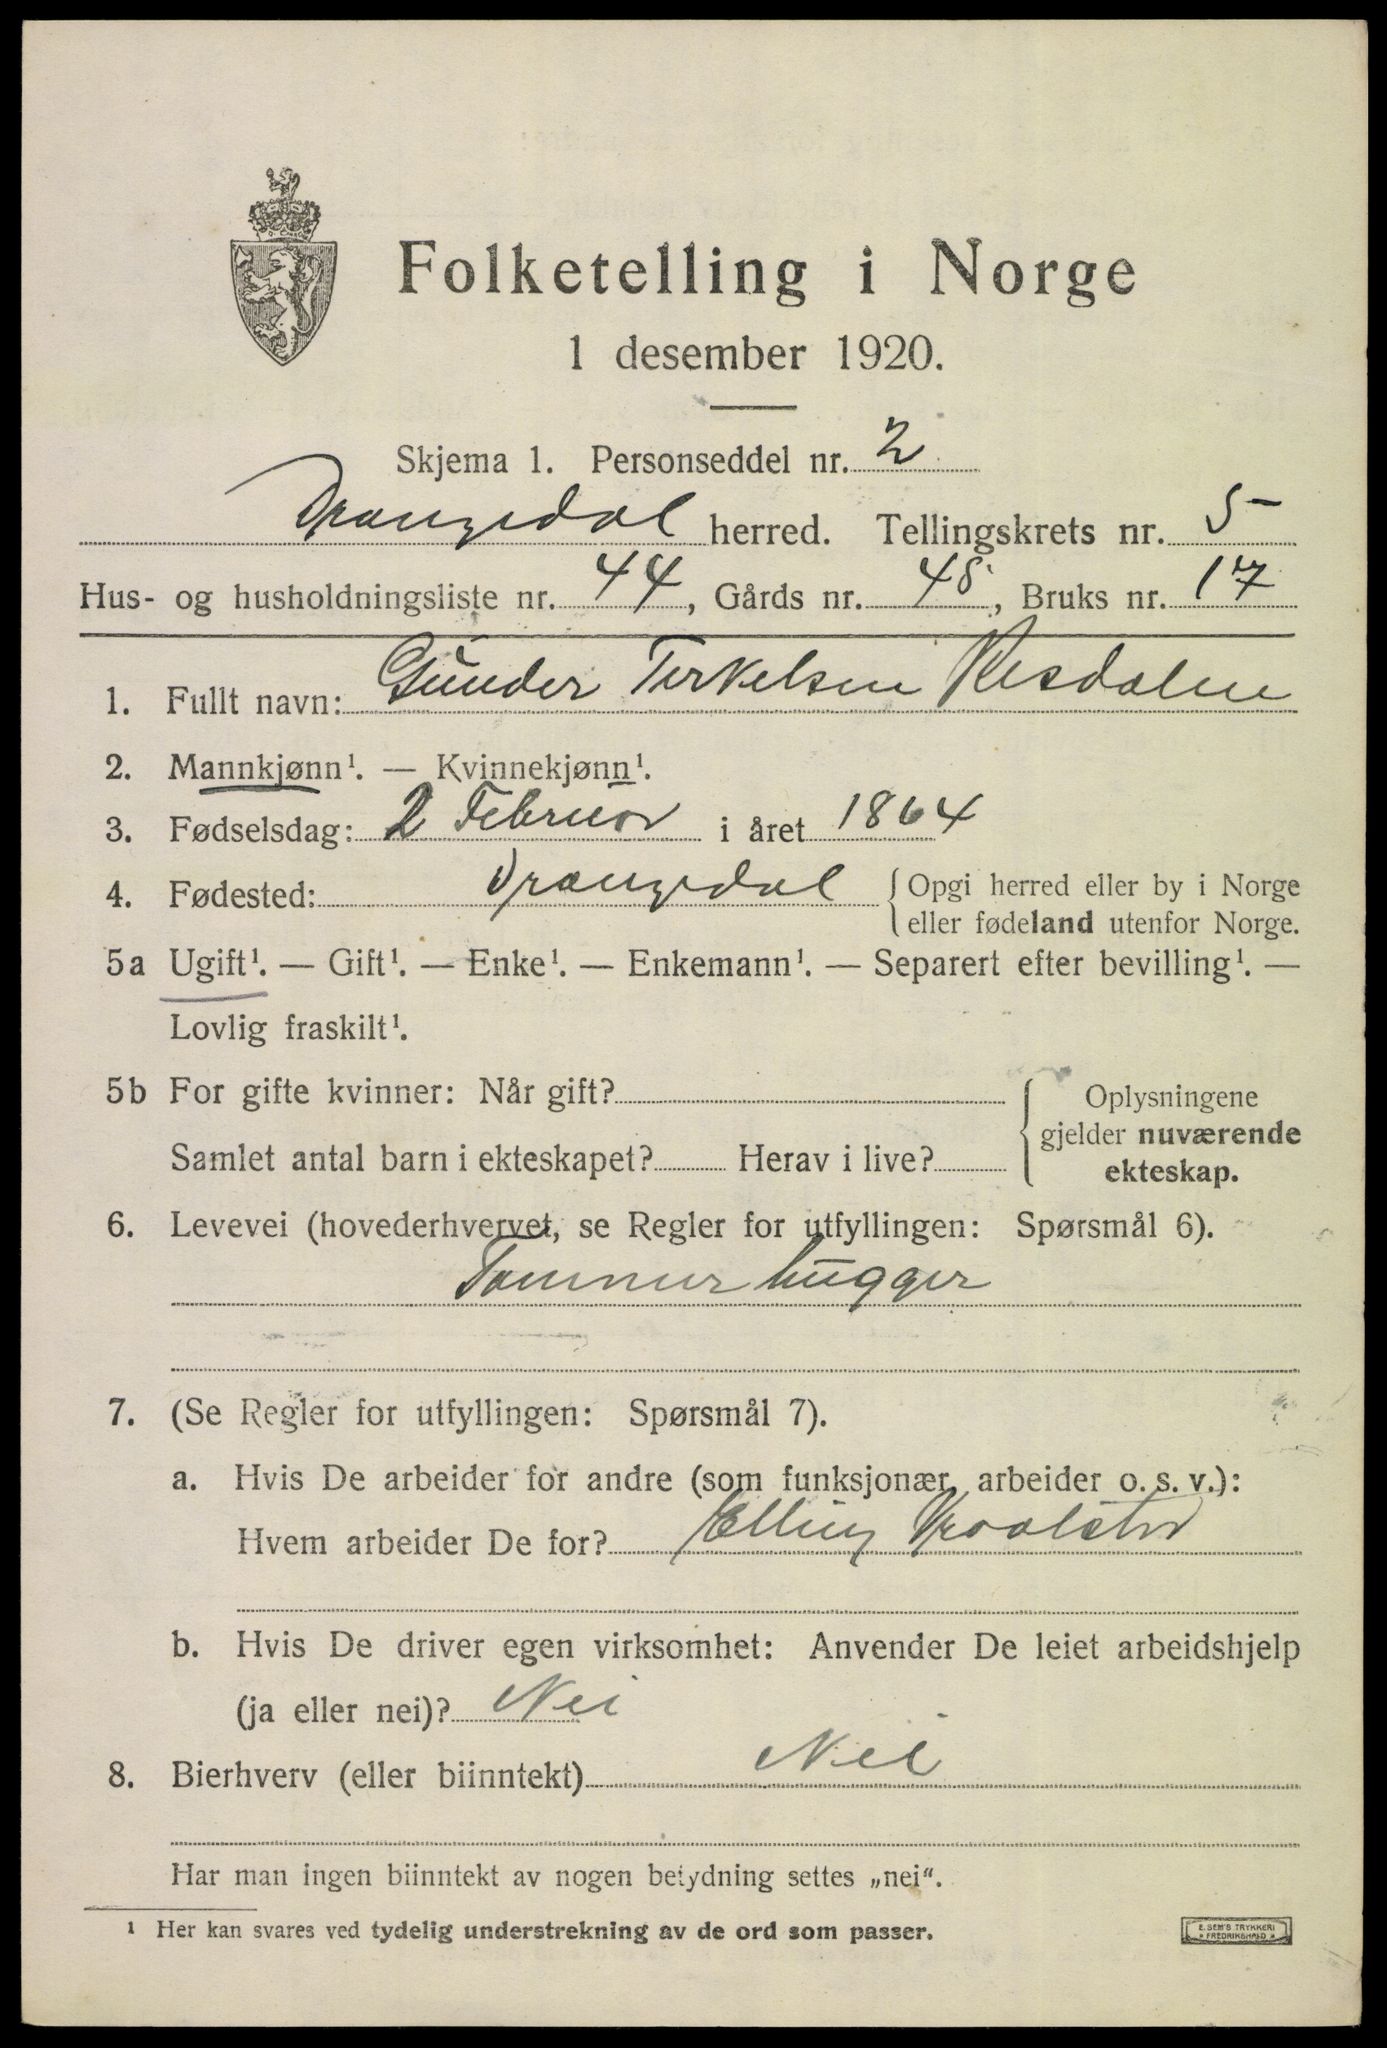 Folketelling i Norge
1 desember 1920.
Skjema 1. Personseddel nr. 2
Drangedal herred. Tellingskrets nr. 5
Hus- og husholdningsliste nr. 44, Gårds nr. 48, Bruks nr. 17
1. Fullt navn: Gunder Terkelsen
2. Mannkjønn¹. — Kvinnekjønn¹.
3. Fødselsdag: 2 Februar i året 1864
4. Fødested: Drangedal { Opgi herred eller by i Norge
eller fødeland utenfor Norge.
5a Ugift¹. — Gift¹. — Enke¹. — Enkemann¹. — Separert efter bevilling¹. —
Lovlig fraskilt¹.
5b For gifte kvinner: Når gift? { Oplysningene
gjelder nuværende
Samlet antal barn i ekteskapet? Herav i live?
ekteskap.
6. Levevei (hovederhvervet, se Regler for utfyllingen: Spørsmål 6).
Tømmerhugger
7. (Se Regler for utfyllingen: Spørsmål 7).
a. Hvis De arbeider for andre (som funksjonær, arbeider o. s. v.):
Hvem arbeider De for? Elling
b. Hvis De driver egen virksomhet: Anvender De leiet arbeidshjelp
(ja eller nei)? Nei
8. Bierhverv (eller biinntekt) Nei
Har man ingen biinntekt av nogen betydning settes „nei“.
¹ Her kan svares ved tydelig understrekning av de ord som passer.
E. SEM'S TRYKKERI
* FREDRIKSHALD *